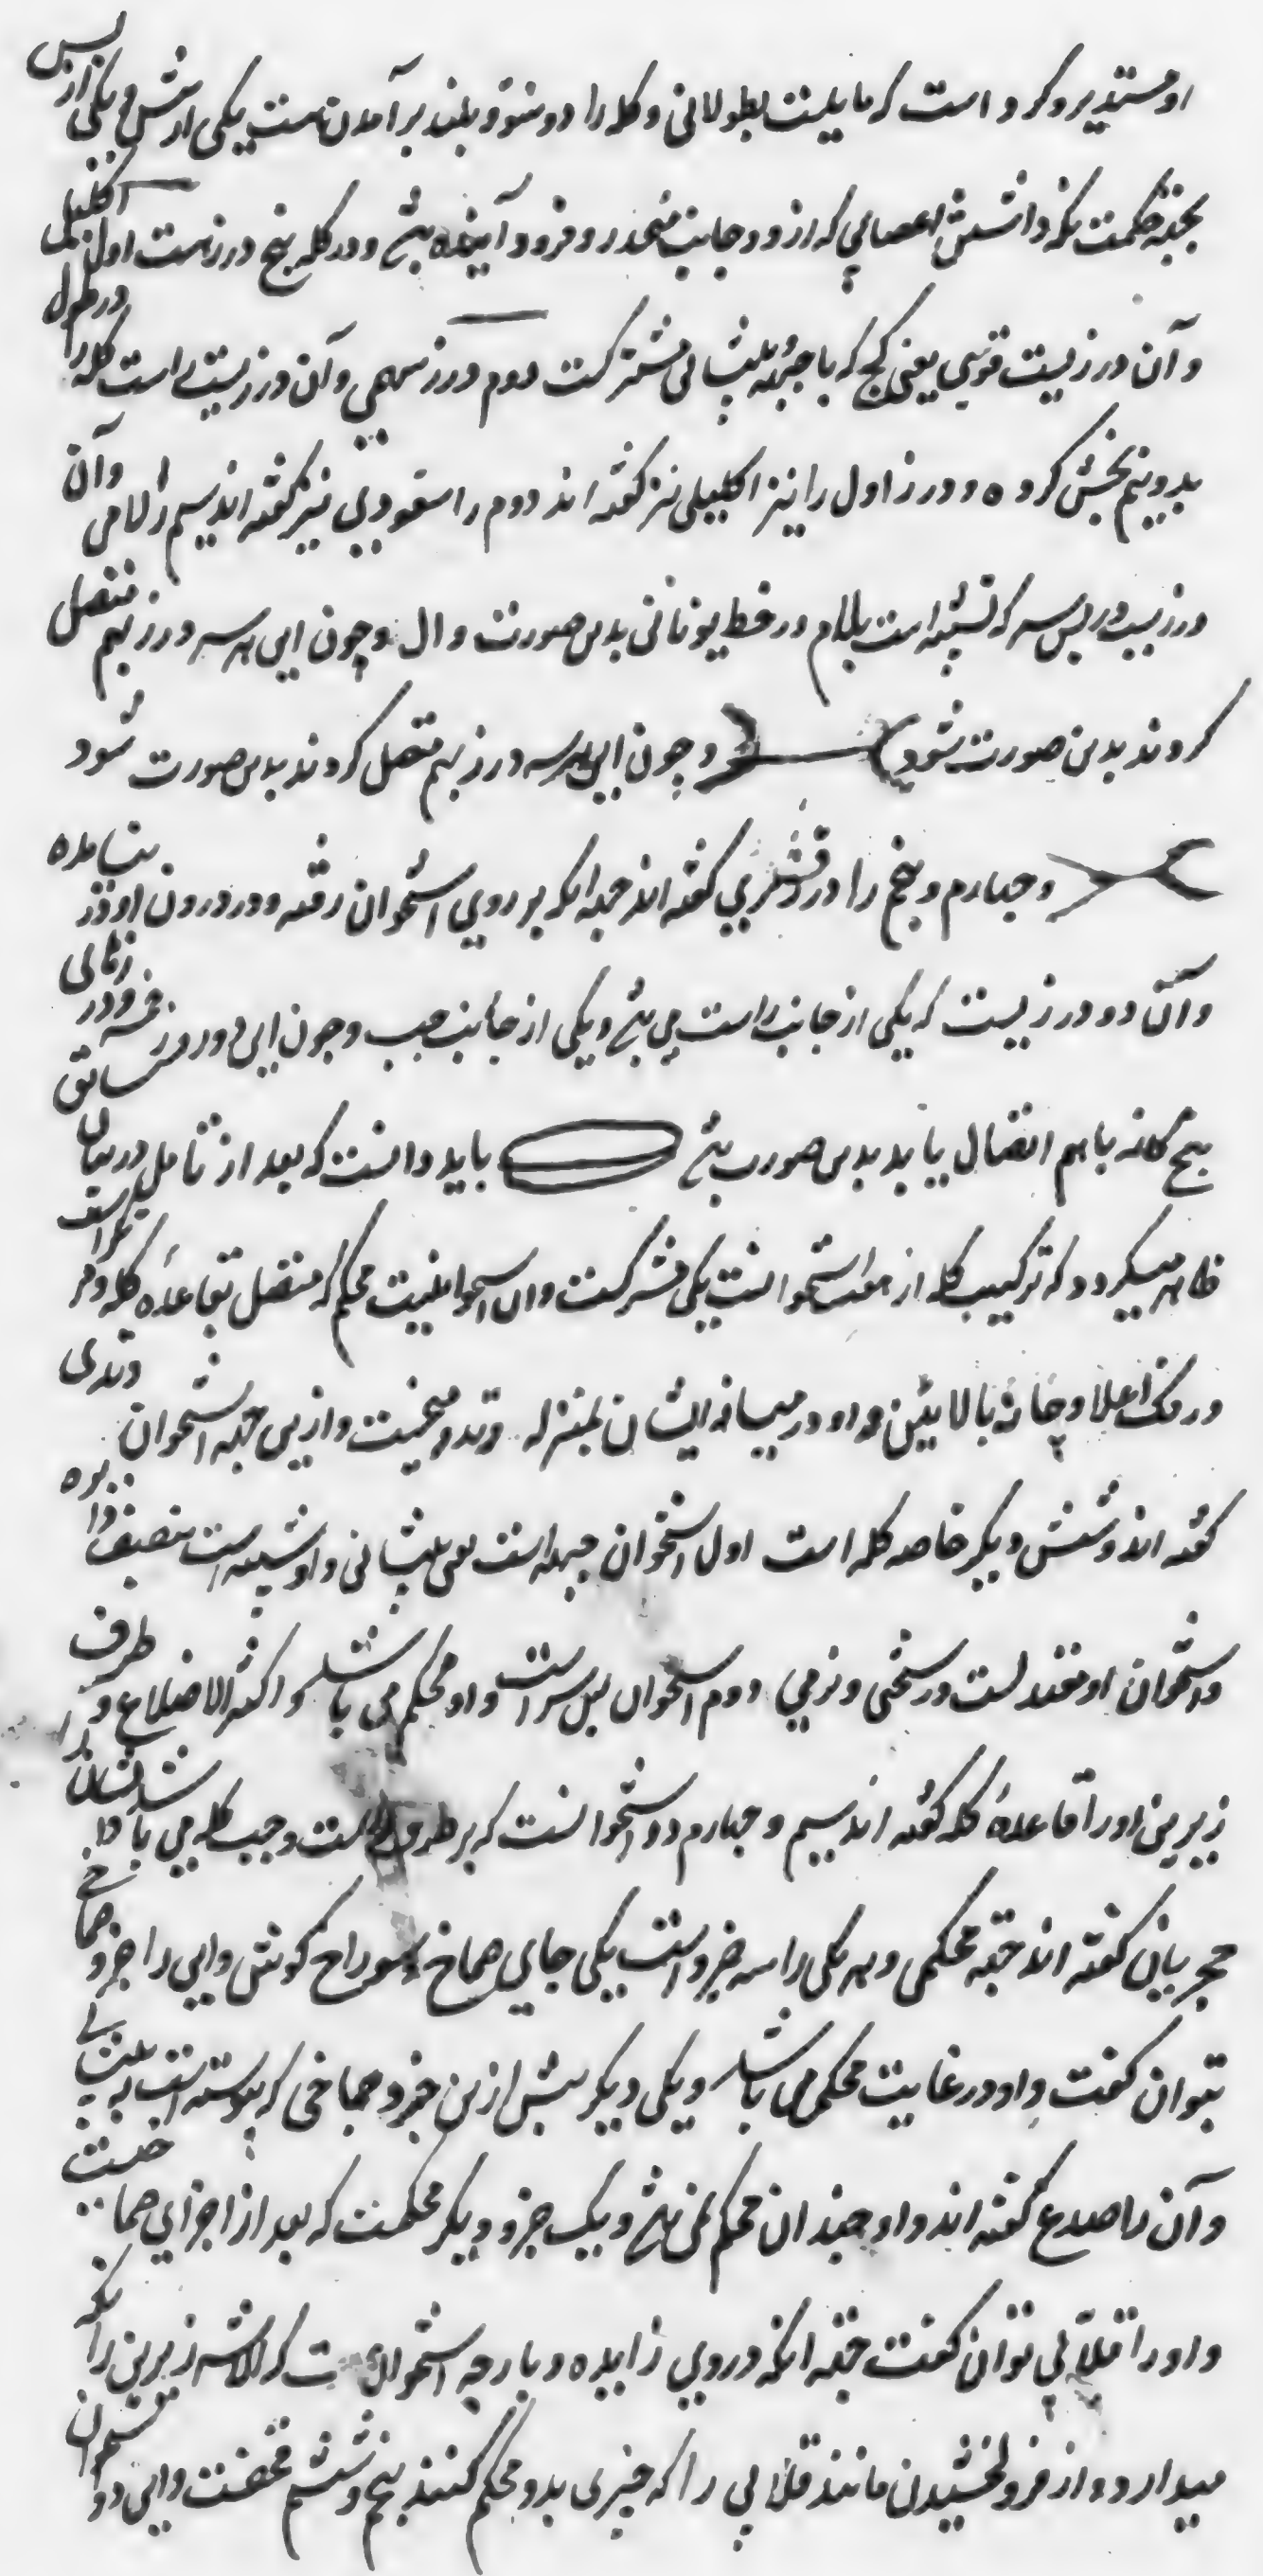 او مستدیر و کرد است که مایلست بطولانی و کله را دو نتو و بلند برآمدن است یکی از پیش و یکی از پس
بجهة حکمت نکه داشتن اعصابی که از دو جانب منحدر و فرود آینده بود و در کله پنج درزست اول اکلیلی
و آن درزیست قوسی یعنی کج که با جبهه پیشانی مشترکست دوم درز سهمی و آن درزیست راست کله را در طول
بدو نیم بخش کرده و درز اول را نیز اکلیلی نیز کفته اند دوم را سفودی نیز کفته اند سیم را لامی و آن
درزیست در پس سر که تشبیه است بلام در خط یونانی بدین صورت و ال و چون این هر سه درز بهم متصل
کردند بدین صورت شود و چون این هر سه درز بهم متصل کردند بدین صورت شود
و چهارم و پنج را درز قشری کفته اند جهة انکه بر روی استخوان رفته و در درون او در نیامده
و آن دو درزیست که یکی از جانب راست می بود و یکی از جانب چپ و چون این دو درز قشری و درزهای سابق
پنج کانه باهم اتصال یابد بدین صورت بود باید دانست که بعد از تامل درین بیان
ظاهر میکردد که ترکیب کله از هفت استخوانست یکی مشترکست و آن استخوانیست محکم که متصل بقاعده کله و مر
در فک اعلا و چانه بالایین و او در میانه ایشان بمنزله وتد و میخست و ازین جهة استخوان وتدی
کفته اند و شش دیکر خاصه کله است اول استخوان جبهه است یعنی پیشانی و او شبیه است بنصف دایره
و استخوان او معتدلست در سختی و نرمی دوم استخوان پس سر است و او محکم می باشد و اکثر الاضلاع و طرف
زیرین او را قاعدهٔ کله کفته اند سیم و چهارم دو استخوانست که بر طرف راست و چپ کله می باشد و ایشان را
حجریان کفته اند جهة محکمی و هر یکی را سه جزو است یکی جای صماخ سوراخ کوش و این را جزو صماخی
بتوان کفت و او در غایت محکمی می باشد و یکی دیکر پیش ازین جزو صماخی که پیوسته است به پیشانی
و آن را صدغ کفته اند و او چندان محکم نمی بود و یک جزو دیکر محکمست که بعد از اجزای صماخیست
و او را قلابی توان کفت جهة انکه در وی زایده و پارچه استخوان است که لاشه زیرین را نکه
میدارد و از فرو لخشیدن مانند قلابی را که چیزی بدو محکم کنند پنج و ششم قحفست و این دو استخوان